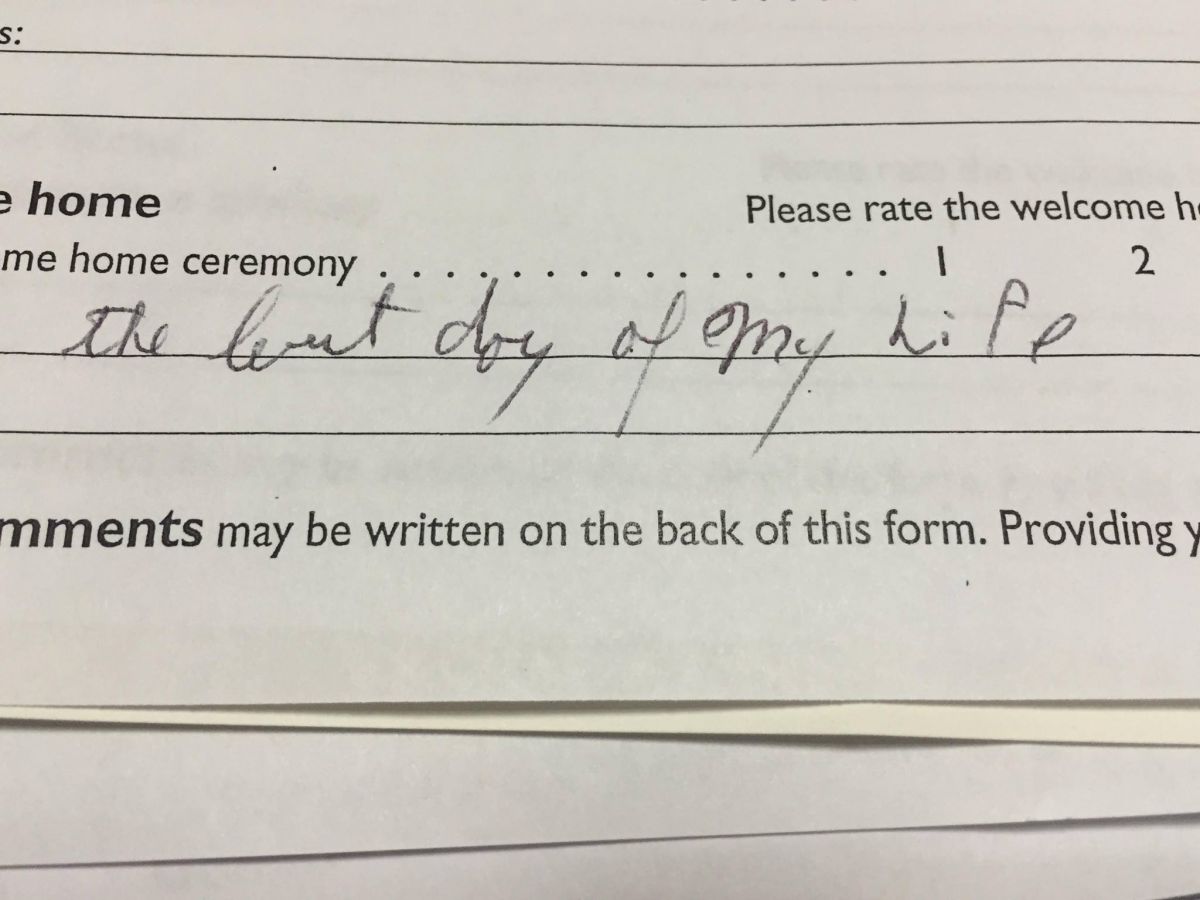 s:
e home
Please rate the welcome h
me home ceremony . . . . . . . . . . . . . . . . . 1 2
the best day of my Life
mments may be written on the back of this form. Providing y